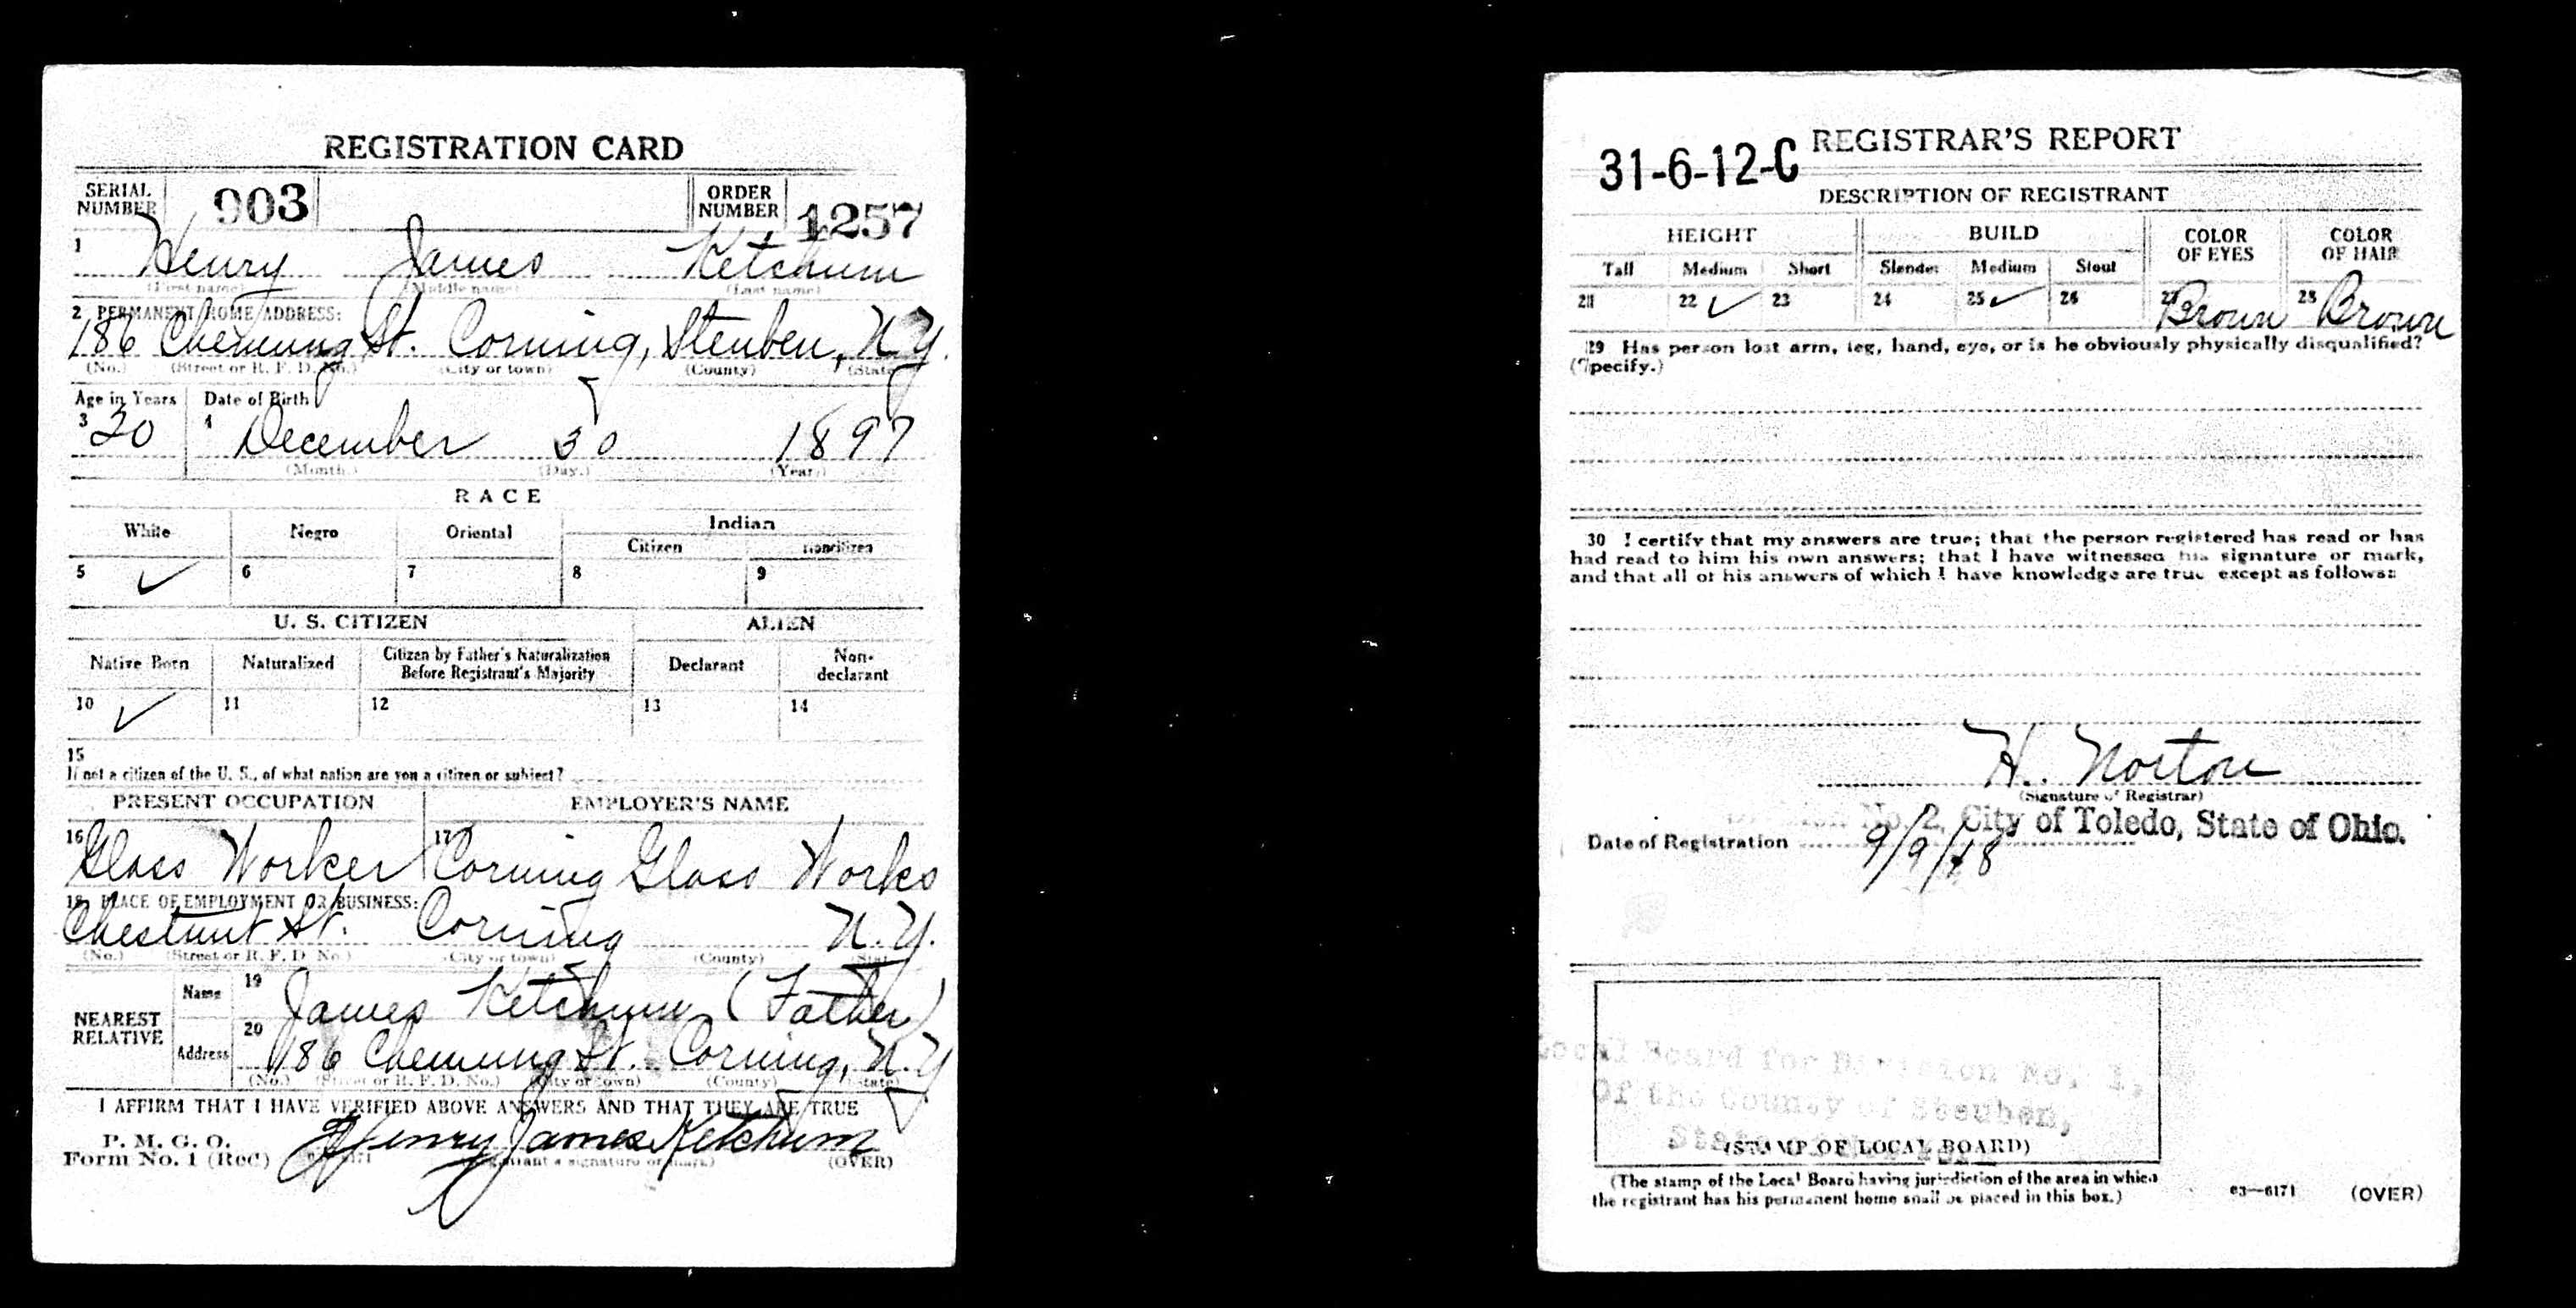 REGISTRATION CARD
SERIAL NUMBER 903 ORDER NUMBER 1257
1 Henry James Ketchum
(First name) (Middle name) (Last name)
2 PERMANENT HOME ADDRESS:
186 Chemung St. Corning, Steuben, N.Y.
(No.) (Street or R. F. D. No.) (City or town) (County) (State)
Age in Years Date of Birth
3 20 4 December 30 1897
(Month.) (Day.) (Year.)
RACE
White Negro Oriental Indian
Citizen Noncitizen
5 ✓ 6 7 8 9
U. S. CITIZEN ALIEN
Native Born Naturalized Citizen by Father's Naturalization Before Registrant's Majority Declarant Non-declarant
10 ✓ 11 12 13 14
15
If not a citizen of the U. S., of what nation are you a citizen or subject?
PRESENT OCCUPATION EMPLOYER'S NAME
16 Glass Worker 17 Corning Glass Works
18 PLACE OF EMPLOYMENT OR BUSINESS:
Chestnut St. Corning N.Y.
(No.) (Street or R. F. D. No.) (City or town) (County) (State)
NEAREST RELATIVE
Name 19 James Ketchum (Father)
Address 20 186 Chemung St. Corning, N.Y
(No.) (Street or R. F. D. No.) (City or town) (County) (State)
I AFFIRM THAT I HAVE VERIFIED ABOVE ANSWERS AND THAT THEY ARE TRUE
P. M. G. O.
Form No. 1 (Red) Henry James Ketchum
(Registrant's signature or mark) (OVER)
31-6-12-C REGISTRAR'S REPORT
DESCRIPTION OF REGISTRANT
HEIGHT BUILD COLOR OF EYES COLOR OF HAIR
Tall Medium Short Slender Medium Stout
21 22 ✓ 23 24 25 ✓ 26 27 Brown 28 Brown
29 Has person lost arm, leg, hand, eye, or is he obviously physically disqualified?
(Specify.)
30 I certify that my answers are true; that the person registered has read or has
had read to him his own answers; that I have witnessed his signature or mark,
and that all of his answers of which I have knowledge are true except as follows:
H. Norton
(Signature of Registrar)
No. 2, City of Toledo, State of Ohio.
Date of Registration 9/9/18
Local Board for Division No. 1,
Of the County of Steuben,
(STAMP OF LOCAL BOARD)
(The stamp of the Local Board having jurisdiction of the area in which
the registrant has his permanent home shall be placed in this box.)
63—6171 (OVER)